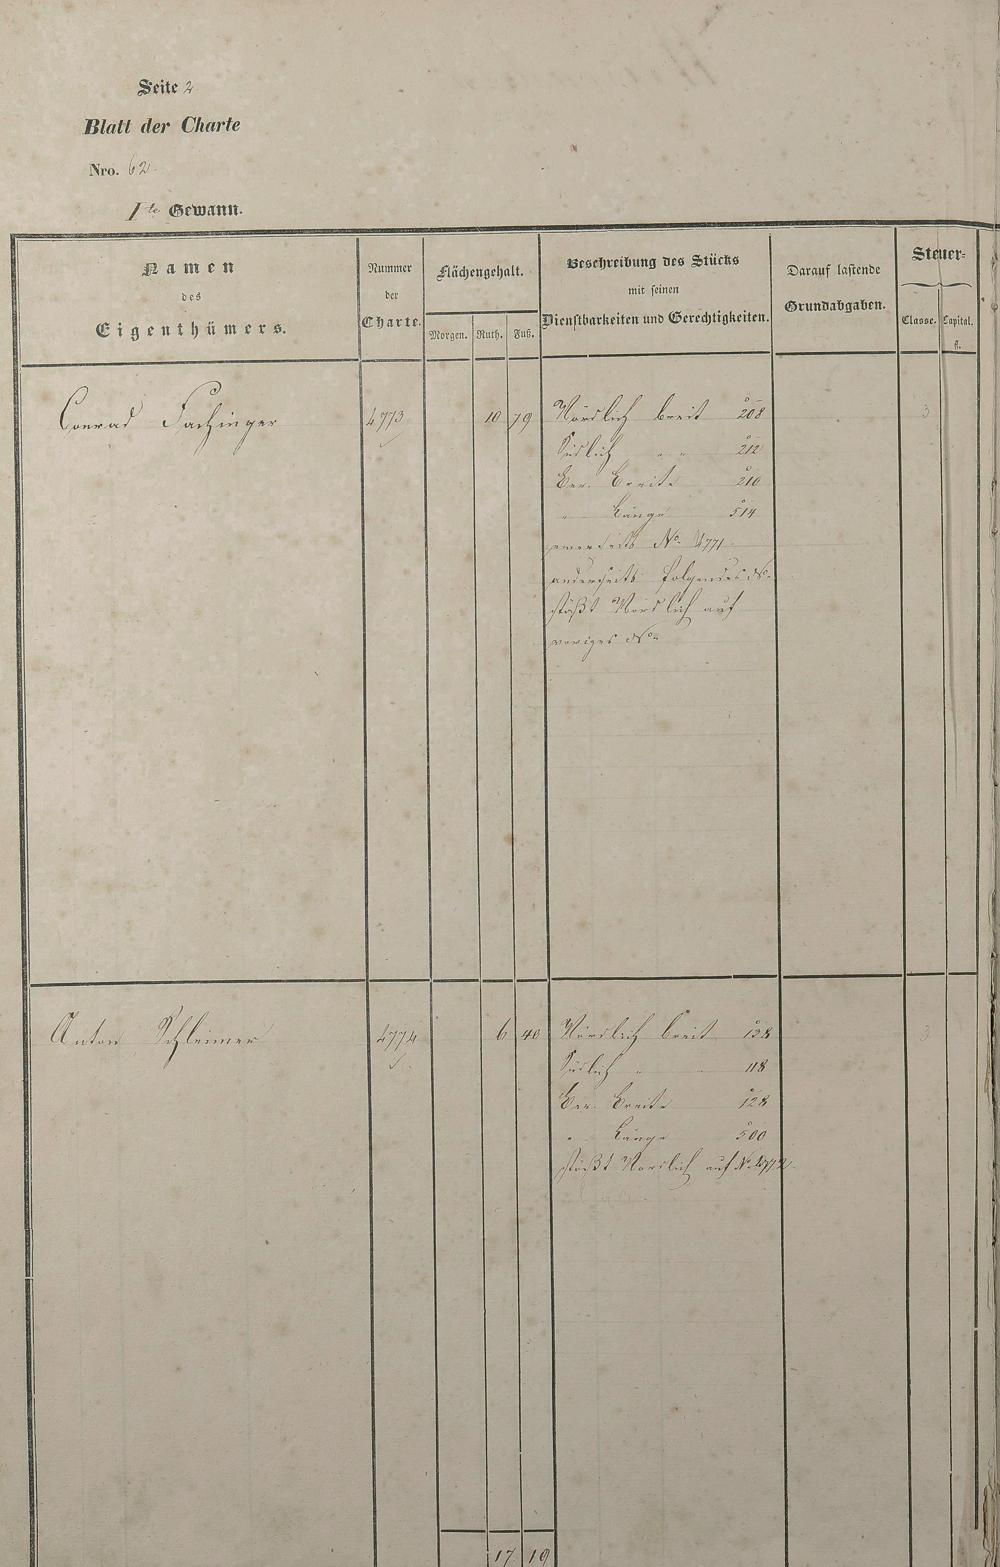 Seite 2
Blatt der Charte
Nro. 62.
1te Gewann.
Namen
des
Eigenthümers.
Nummer
der
Charte.
Flächengehalt.
Morgen. Ruth. Fuß.
Beschreibung des Stücks
mit seinen
Dienstbarkeiten und Gerechtigkeiten.
Darauf lastende
Grundabgaben.
Steuer-
Classe. Capital.
fl.
Conrad Fachinger 4773 10 79 Nördlich breit 208 3
Südlich " " 212
Ver. Breite 210
" Länge 514
einerseits No. 4771
anderseits folgendes No.
stößt Nördlich auf
voriges No.
Anton Schleimer 4774 6 40 Nördlich breit 138 3
Südlich " " 118
Ver. Breite 128
" Länge 500
stößt Nördlich auf No. 4772.
17 19